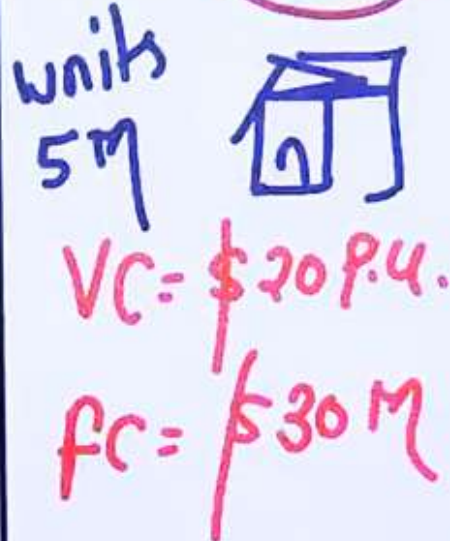 units
5M
VC= $20 P.U.
FC= $30 M